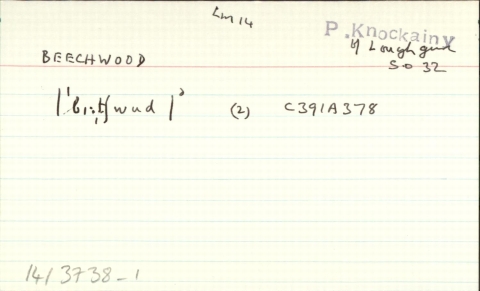 Lm 14
P. Knockainy
Lough gur
S O 32
BEECHWOOD
|ˈbiːtʃwud|
(2) C391A378
14/3738-1